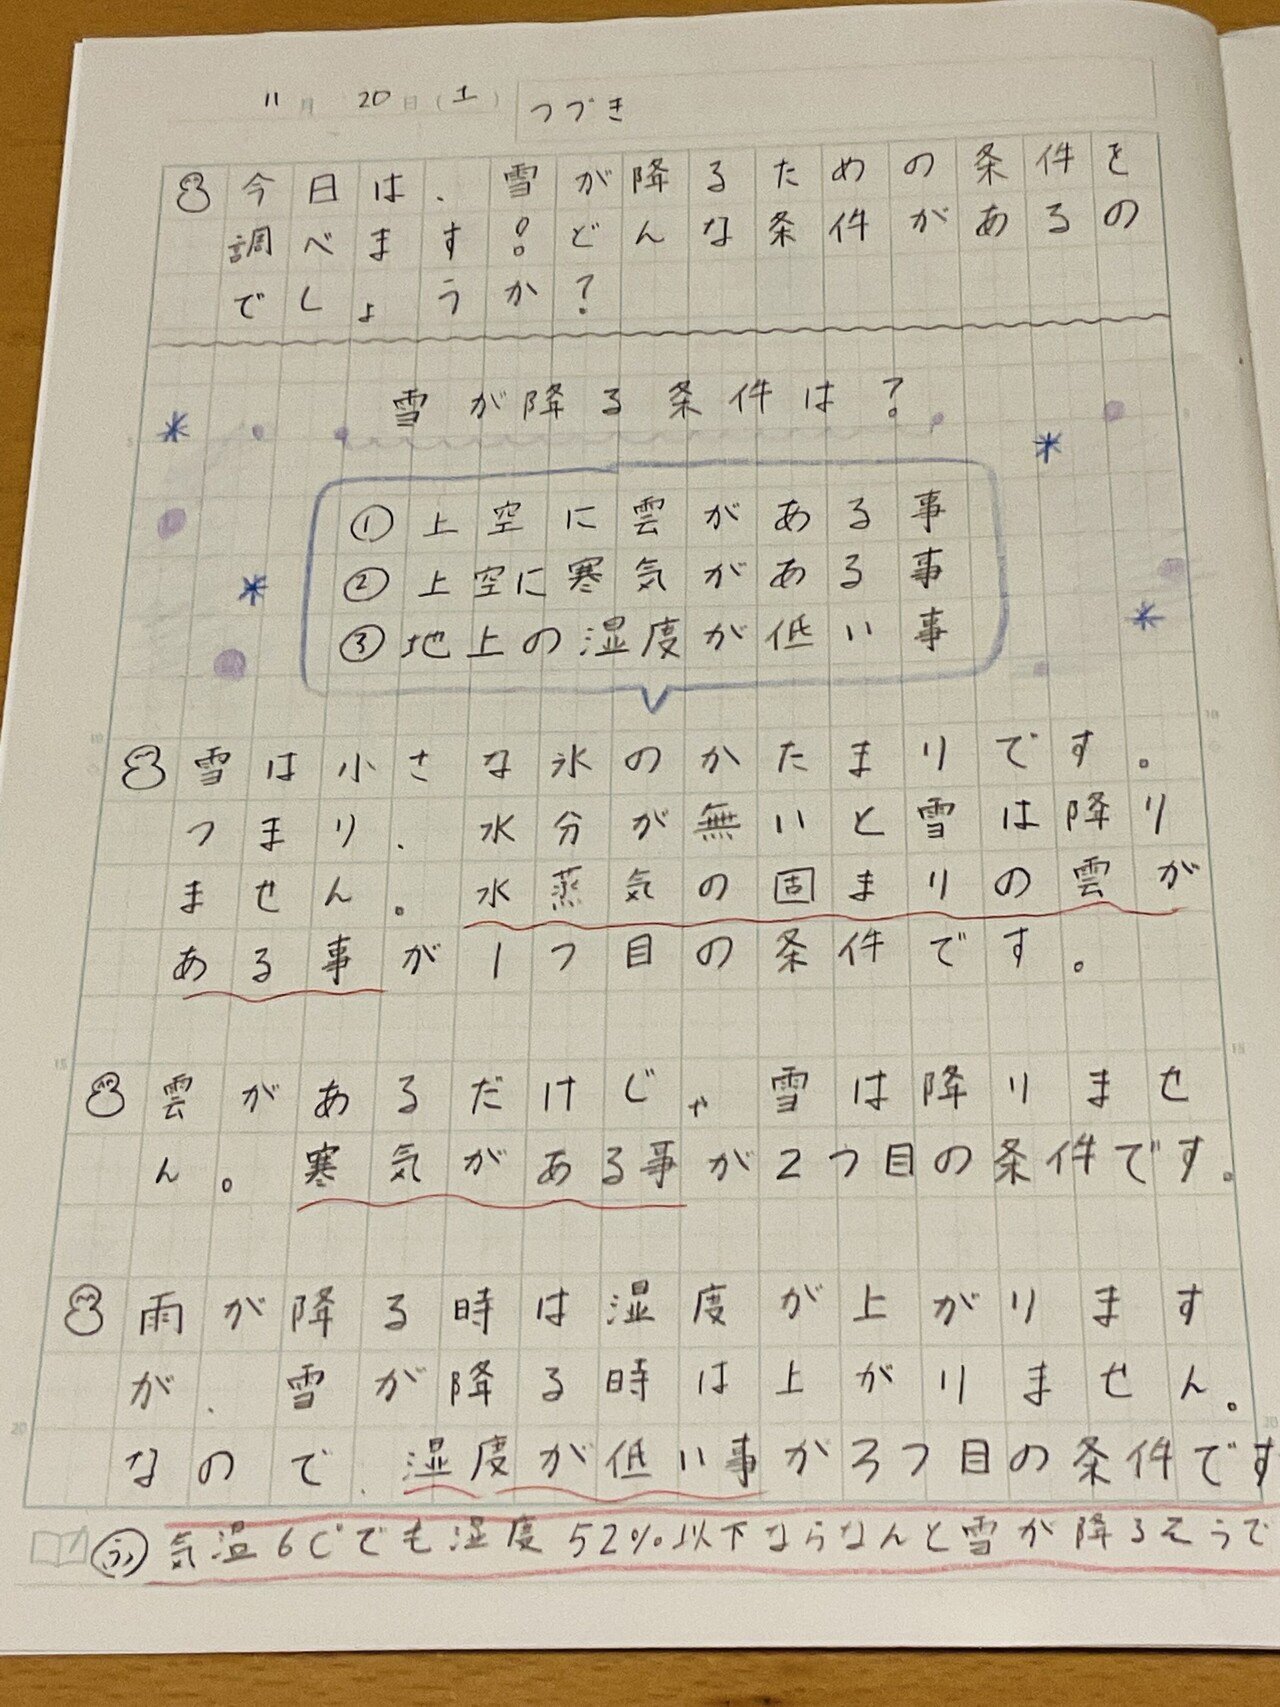 11月 20日(土) つづき
今日は、雪が降るための条件を
調べます!どんな条件があるの
でしょうか?
雪が降る条件は?
①上空に雲がある事
②上空に寒気がある事
③地上の湿度が低い事
雪は小さな氷のかたまりです。
つまり、水分が無いと雪は降り
ません。水蒸気の固まりの雲が
ある事が1つ目の条件です。
雲があるだけじゃ雪は降りませ
ん。寒気がある事が2つ目の条件です。
雨が降る時は湿度が上がります
が、雪が降る時は上がりません。
なので、湿度が低い事が3つ目の条件です
気温6℃でも湿度52%以下ならなんと雪が降るそうで